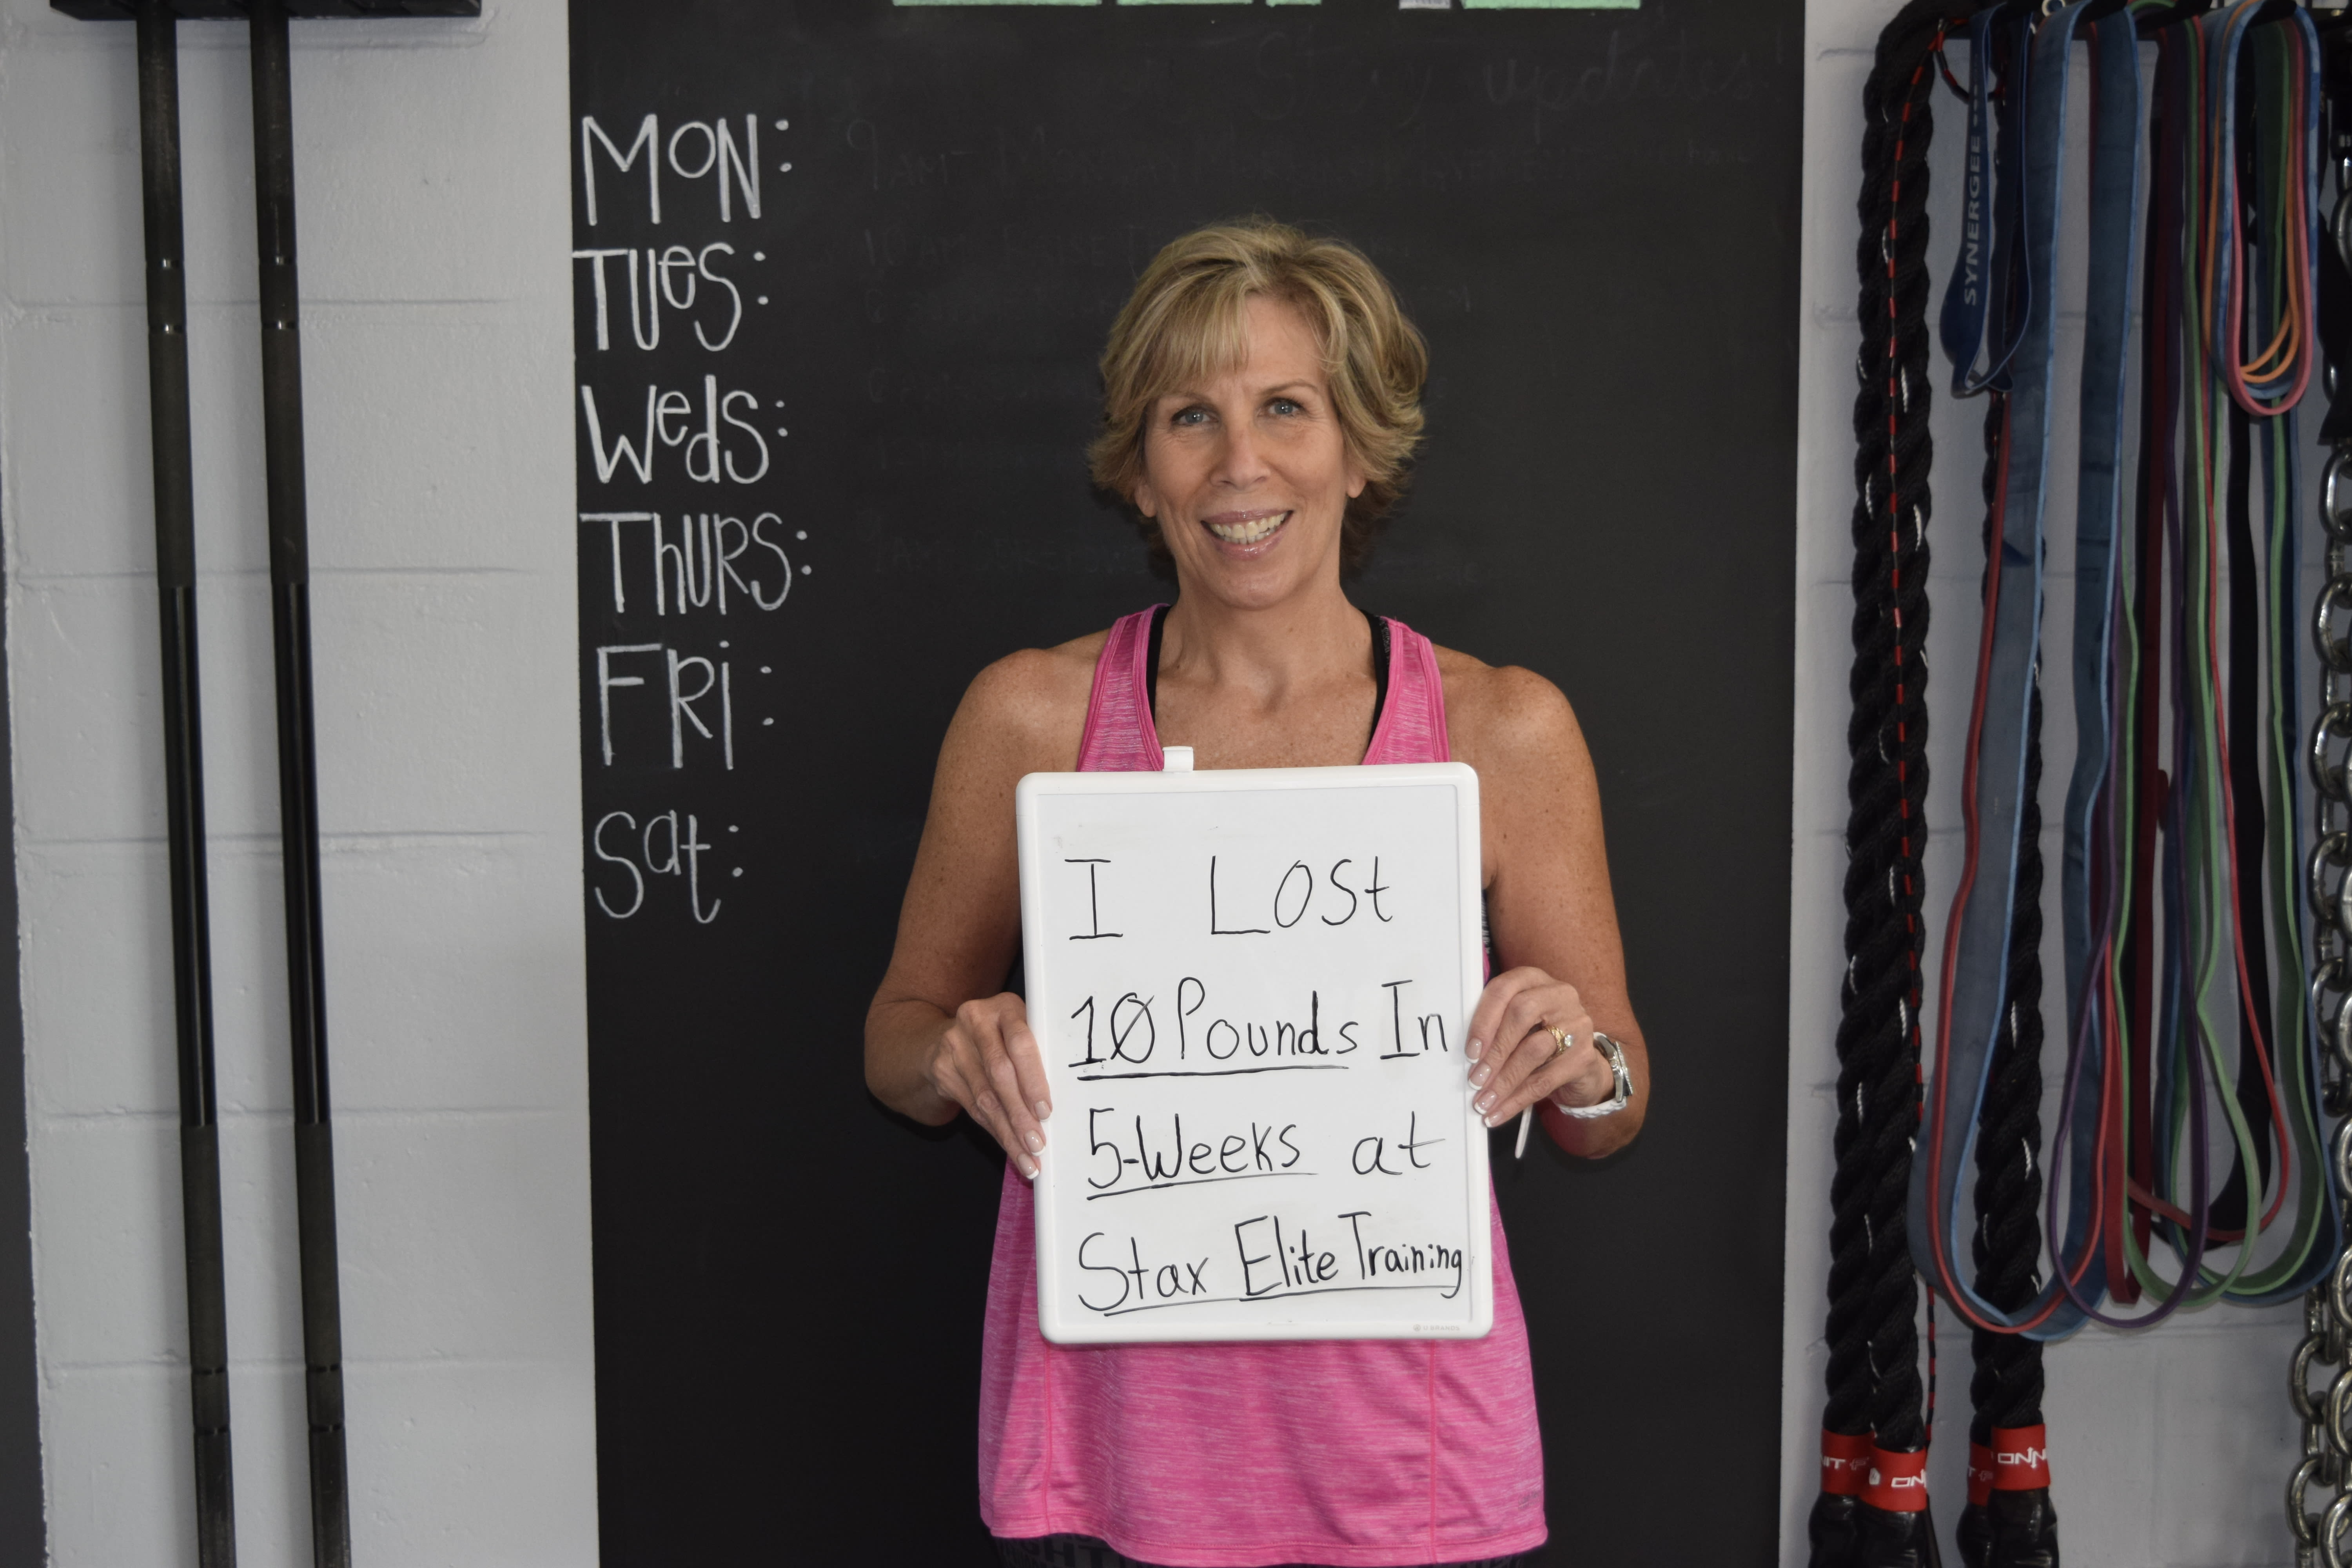 Stay updates!
MON:
TUes:
Weds:
THURS:
FRi:
Sat:
I Lost
10 Pounds In
5-Weeks at
Stax Elite Training
U BRANDS
SYNERGEE
ONNIT